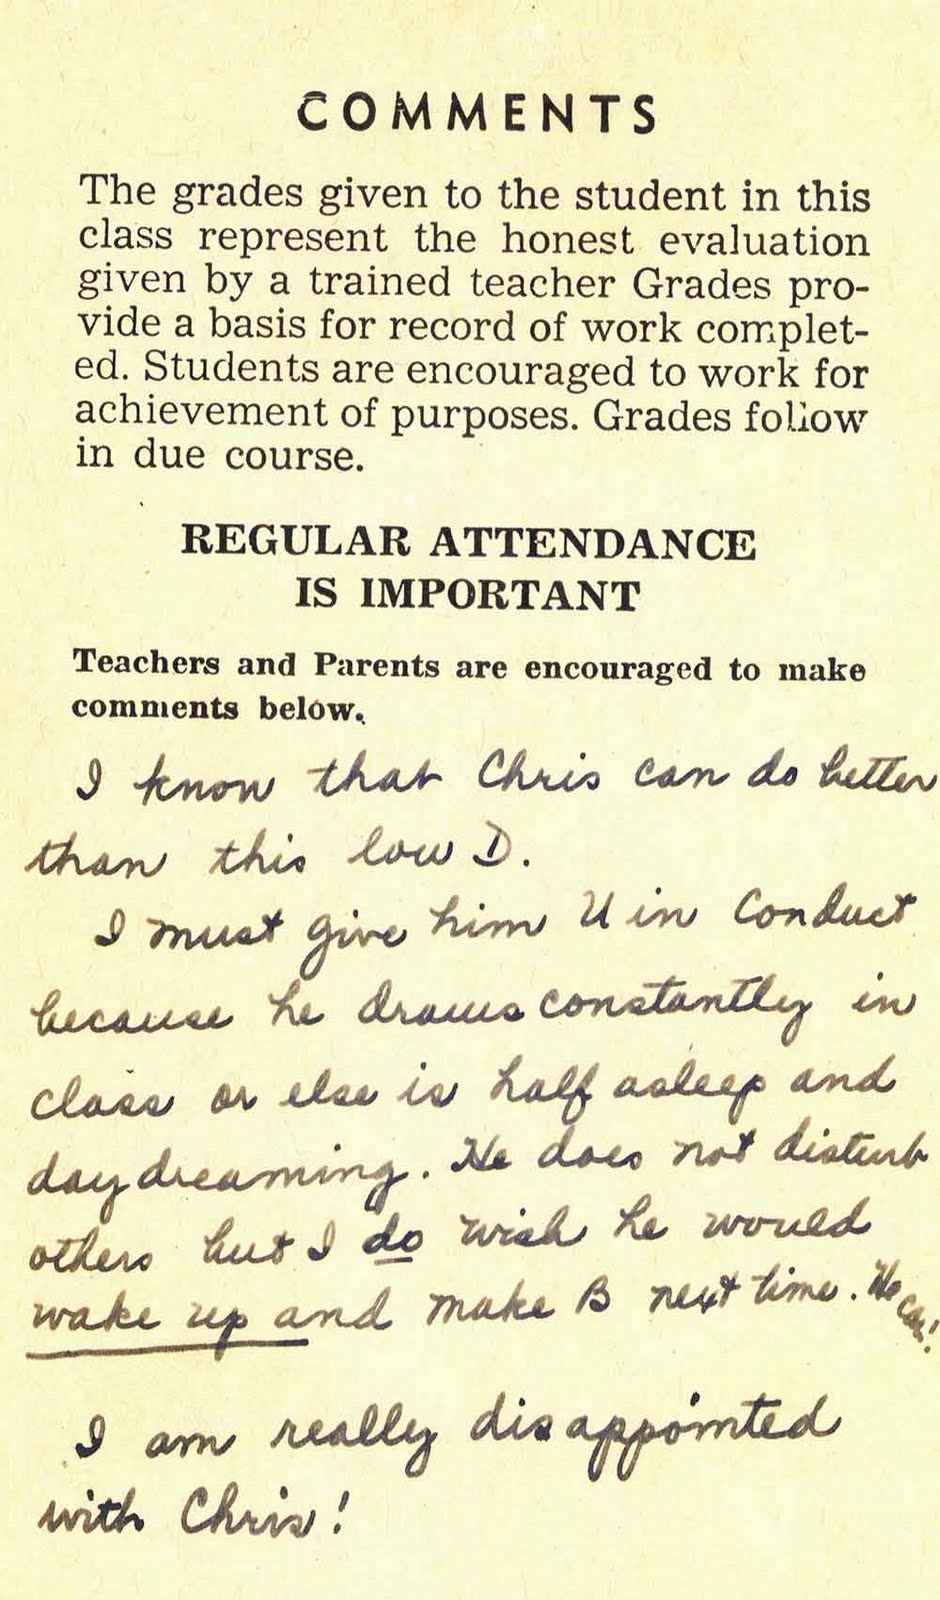 COMMENTS
The grades given to the student in this
class represent the honest evaluation
given by a trained teacher Grades pro-
vide a basis for record of work complet-
ed. Students are encouraged to work for
achievement of purposes. Grades follow
in due course.
REGULAR ATTENDANCE
IS IMPORTANT
Teachers and Parents are encouraged to make
comments below.
I know that Chris can do better
than this low D.
I must give him U in Conduct
because he draws constantly in
class or else is half asleep and
daydreaming. He does not disturb
others but I do wish he would
wake up and make B next time. He
can!
I am really disappointed
with Chris!